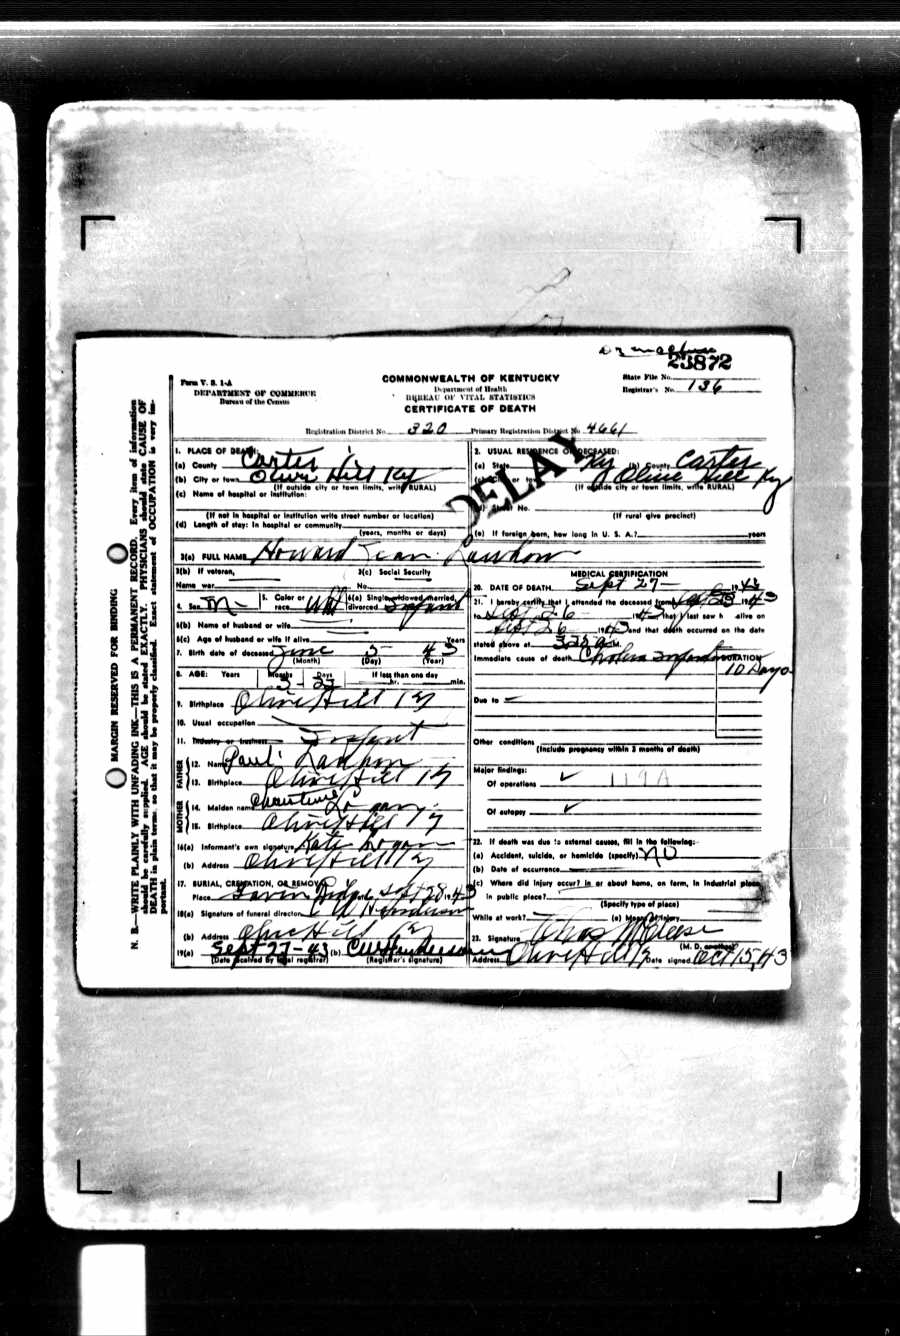 23872
Form V. S. 1-A
DEPARTMENT OF COMMERCE
Bureau of the Census
COMMONWEALTH OF KENTUCKY
Department of Health
BUREAU OF VITAL STATISTICS
CERTIFICATE OF DEATH
State File No.
Registrar's No. 136
Registration District No. 320 Primary Registration District No. 4661
DELAY
MARGIN RESERVED FOR BINDING
N. B.—WRITE PLAINLY WITH UNFADING INK—THIS IS A PERMANENT RECORD. Every item of information
should be carefully supplied. AGE should be stated EXACTLY. PHYSICIANS should state CAUSE OF
DEATH in plain terms, so that it may be properly classified. Exact statement of OCCUPATION is very im-
portant.
1. PLACE OF DEATH:
(a) County Carter
(b) City or town Olive Hill Ky
(If outside city or town limits, write RURAL)
(c) Name of hospital or institution:
(If not in hospital or institution write street number or location)
(d) Length of stay: In hospital or community
(years, months or days)
2. USUAL RESIDENCE OF DECEASED:
(a) State Ky (b) County Carter
Olive Hill Ky
(If outside city or town limits, write RURAL)
(d) Street No.
(If rural give precinct)
(e) If foreign born, how long in U. S. A.? years
3(a) FULL NAME Howard Jean
3(b) If veteran,
Name war
3(c) Social Security
No.
4. Sex M 5. Color or race Wht 6(a) Single, widowed, married, divorced Infant
6(b) Name of husband or wife
6(c) Age of husband or wife if alive Years
7. Birth date of deceased June 5 43
(Month) (Day) (Year)
8. AGE: Years Months Days If less than one day
3 - 22 hr. min.
9. Birthplace Olive Hill Ky
10. Usual occupation
11. Industry or business Infant
FATHER
12. Name Paul
13. Birthplace Olive Hill Ky
MOTHER
14. Maiden name Christine Logan
15. Birthplace Olive Hill Ky
16(a) Informant's own signature Kate Logan
(b) Address Olive Hill Ky
17. BURIAL, CREMATION, OR REMOVAL
Place Date Sept 28 1943
18(a) Signature of funeral director C W Henderson
(b) Address Olive Hill Ky
19(a) Sept 27-43 (b) C W Henderson
(Date received by local registrar) (Registrar's signature)
MEDICAL CERTIFICATION
20. DATE OF DEATH Sept 27 1943
21. I hereby certify that I attended the deceased from Sept 23 1943
to Sept 26 1943, that I last saw h alive on
Sept 26 1943 and that death occurred on the date
stated above at M.
Immediate cause of death Cholera Infantum DURATION
10 Days
Due to
Other conditions
(Include pregnancy within 3 months of death)
Major findings:
Of operations 119A
Of autopsy
22. If death was due to external causes, fill in the following:
(a) Accident, suicide, or homicide (specify) NO
(b) Date of occurrence
(c) Where did injury occur? in or about home, on farm, in industrial place,
in public place?
(Specify type of place)
While at work? (e) Means of injury
23. Signature
(M. D. or other)
Address Olive Hill Ky Date signed Oct 15, 43